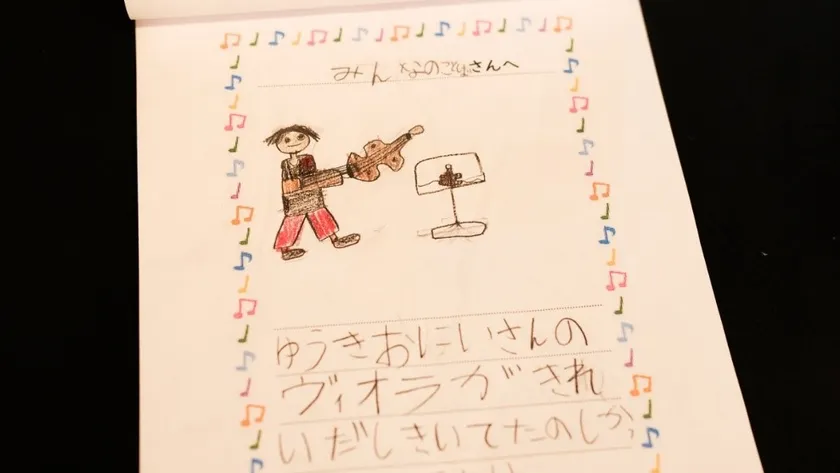 みんなのことばさんへ
ゆうきおにいさんの
ヴィオラがきれ
いだしきいてたのしかっ